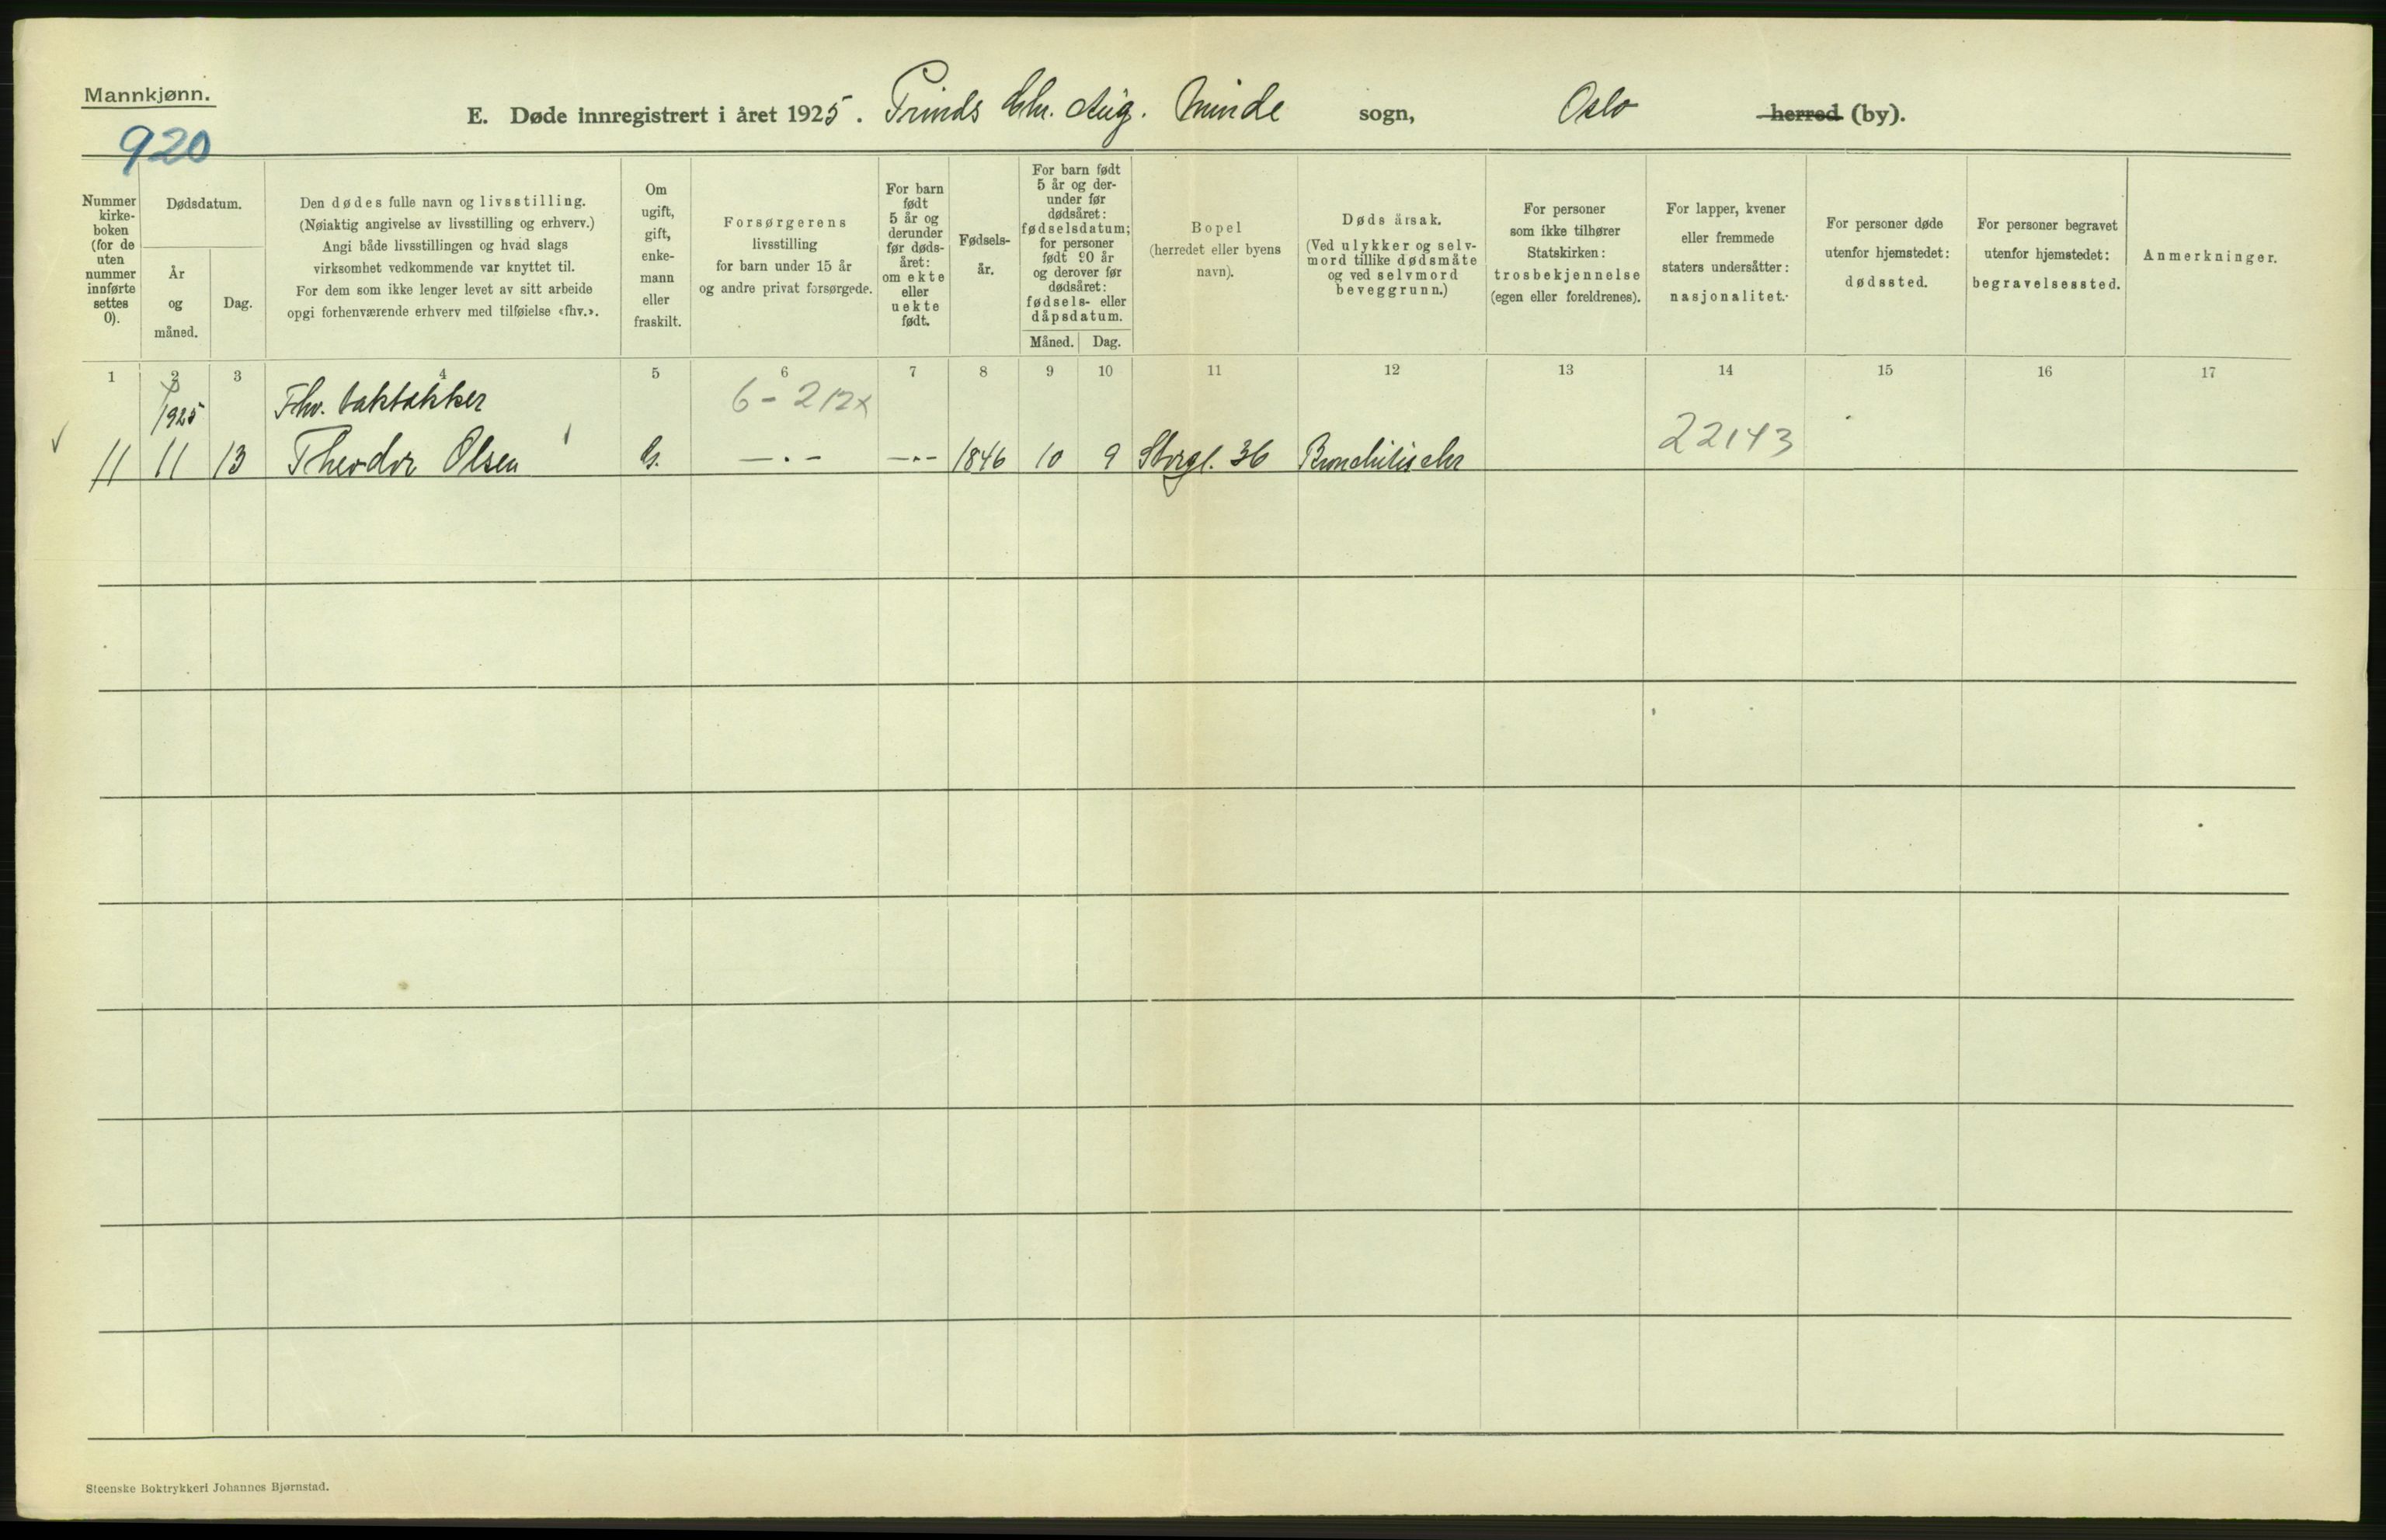 Mannkjønn.
920
E. Døde innregistrert i året 1925. Prinds Chr. Aug. Minde sogn, Oslo herred (by).
Nummer kirke- boken (for de uten nummer innførte settes 0).
Dødsdatum.
År og måned.
Dag.
Den dødes fulle navn og livsstilling.
(Nøiaktig angivelse av livsstilling og erhverv.)
Angi både livsstillingen og hvad slags
virksomhet vedkommende var knyttet til.
For dem som ikke lenger levet av sitt arbeide
opgi forhenværende erhverv med tilføielse «fhv.».
Om ugift, gift, enke- mann eller fraskilt.
Forsørgerens
livsstilling
for barn under 15 år
og andre privat forsørgede.
For barn født 5 år og derunder før døds- året: om ekte eller uekte født.
Fødsels- år.
For barn født 5 år og der- under før dødsåret: fødselsdatum; for personer født 90 år og derover før dødsåret: fødsels- eller dåpsdatum.
Måned.
Dag.
Bopel
(herredet eller byens
navn).
Døds årsak.
(Ved ulykker og selv-
mord tillike dødsmåte
og ved selvmord
beveggrunn.)
For personer
som ikke tilhører
Statskirken:
trosbekjennelse
(egen eller foreldrenes).
For lapper, kvener
eller fremmede
staters undersåtter:
nasjonalitet.
For personer døde
utenfor hjemstedet:
dødssted.
For personer begravet
utenfor hjemstedet:
begravelsessted.
Anmerkninger.
1 2 3 4 5 6 7 8 9 10 11 12 13 14 15 16 17
1925 Fhv. taktekker 6-212x
11 11 13 Theodor Olsen G. —.— —.— 1846 10 9 Storgt. 36 Bronchitis chr 22143
Steenske Boktrykkeri Johannes Bjørnstad.